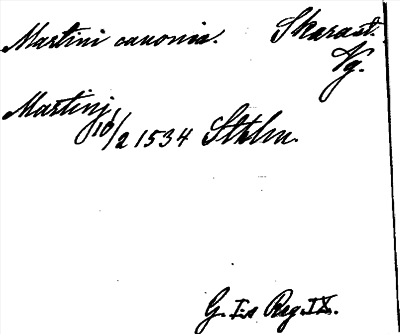 Martini canonia. Skarast.
Vg.
Martinj
16/2 1534 Sthlm.
G. I:s Reg. IX.